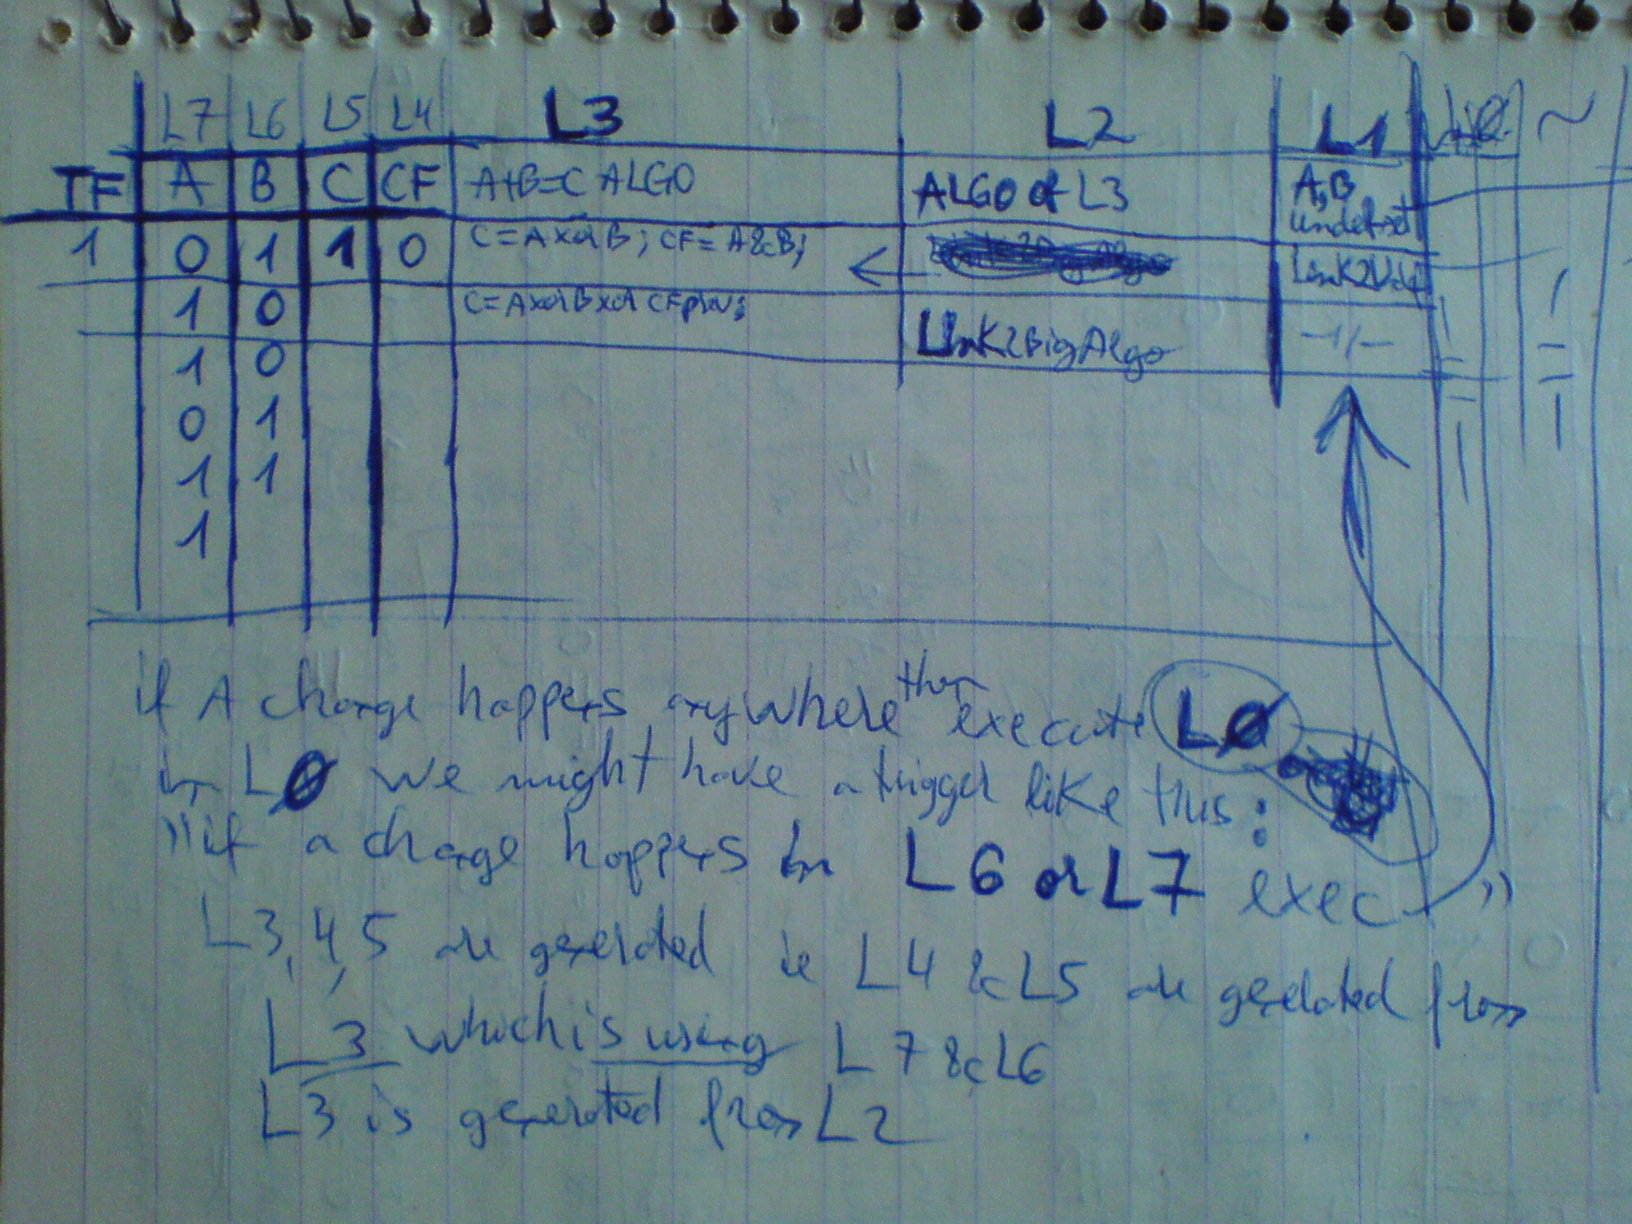 L7 L6 L5 L4 L3 L2 L1 ~
TF A B C CF A+B=C ALGO ALGO of L3 A,B
undefined
1 0 1 1 0 C=A xor B; CF=A&B; ←
1 0 C=A xor B xor CFprev; Link2BigAlgo -1/-
1 0
0 1
1 1
1
if A change happens anywhere then execute LØ
in LØ we might have a trigger like this:
"if a change happens in L6 or L7 exec "
L3,4,5 are generated ie L4 & L5 are generated from
L3 which is using L7 & L6
L3 is generated from L2